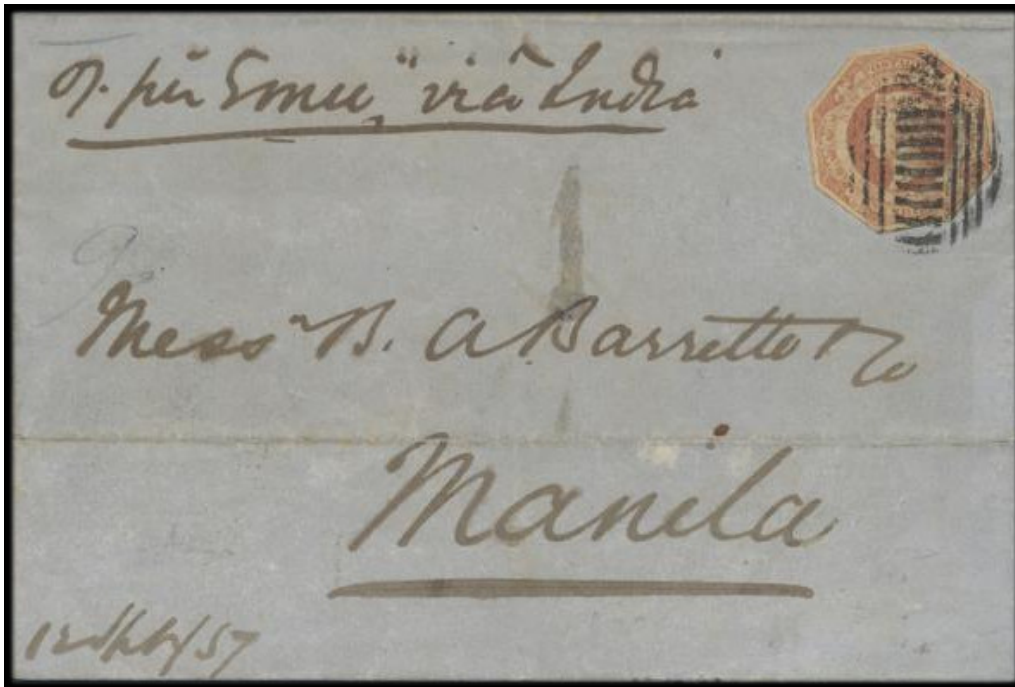 per "Emeu" viâ India
Messrs B. A Barretto & Co
Manila
/57